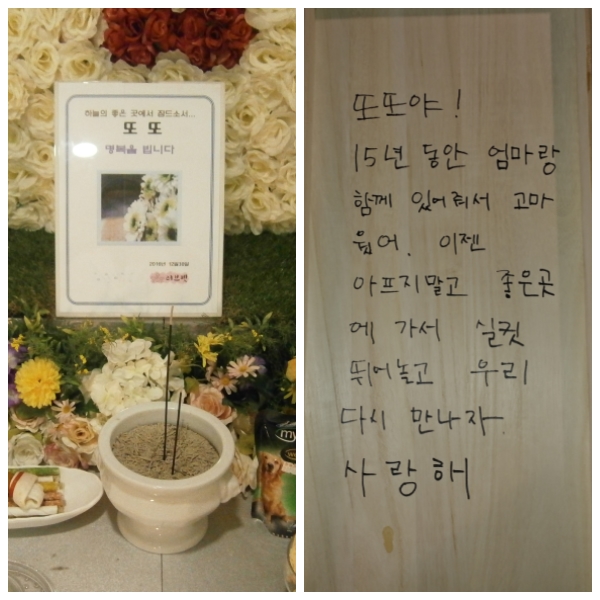 하늘의 좋은 곳에서 잠드소서...
또 또
명복을 빕니다
my
또또야!
15년 동안 엄마랑
함께 있어줘서 고마
웠어. 이젠
아프지말고 좋은곳
에 가서 실컷
뛰어놀고 우리
다시 만나자.
사랑해